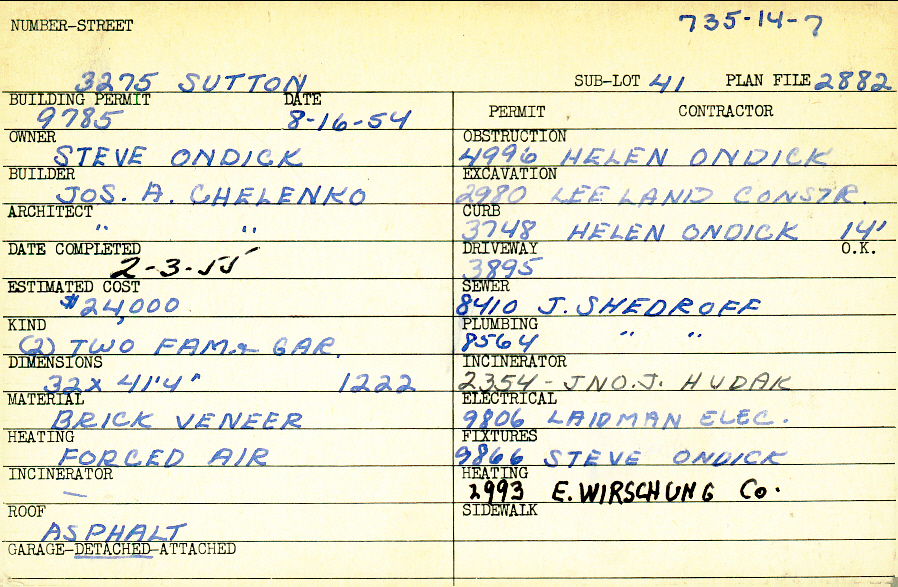 735-14-7
NUMBER-STREET
3275 SUTTON
SUB-LOT 41 PLAN FILE 2882
BUILDING PERMIT DATE
9785 8-16-54
OWNER
STEVE ONDICK
BUILDER
JOS. A. CHELENKO
ARCHITECT
" "
DATE COMPLETED
2-3-55
ESTIMATED COST
$24,000
KIND
(2) TWO FAM. & GAR.
DIMENSIONS
32 x 41'4" 1222
MATERIAL
BRICK VENEER
HEATING
FORCED AIR
INCINERATOR
—
ROOF
ASPHALT
GARAGE-DETACHED-ATTACHED
PERMIT CONTRACTOR
OBSTRUCTION
4996 HELEN ONDICK
EXCAVATION
2980 LEE LAND CONSTR.
CURB
3748 HELEN ONDICK 14'
DRIVEWAY O.K.
3895
SEWER
8410 J. SHEDROFF
PLUMBING
8564 " "
INCINERATOR
2354 - JNO. J. HUDAK
ELECTRICAL
9806 LAIDMAN ELEC.
FIXTURES
9866 STEVE ONDICK
HEATING
2993 E. WIRSCHUNG Co.
SIDEWALK